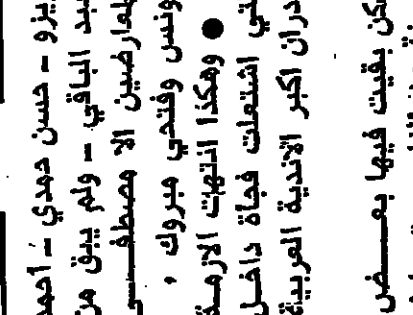 يزو - حسن حمدي - أحمد
عبد الباقي - ولم يبق من
لمعارضين الا مصطفــى
ونس وفتحي مبروك .
● وهكذا انتهت الازمــة
تي اشتعلت فجأة داخــل
دران اكبر الاندية العربية
كن بقيت فيها بعــــض